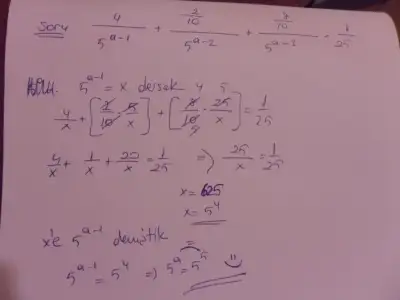 Soru 4/5^(a-1) + (2/10)/5^(a-2) + (8/10)/5^(a-3) = 1/25
5^(a-1) = x dersek
4/x + [2/10 · 5/x] + [8/10 · 25/x] = 1/25
4/x + 1/x + 20/x = 1/25 => 25/x = 1/25
x = 625
x = 5^4
x'e 5^(a-1) demiştik
5^(a-1) = 5^4 => 5^a = 5^5